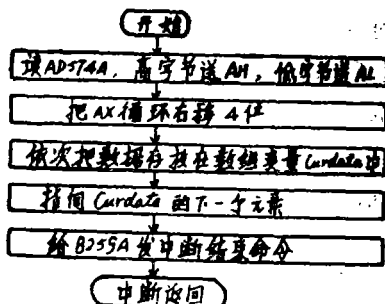 开始
读AD574A，高字节送AH，低字节送AL
把AX循环右移4位
依次把数据存放在数组变量Curdata中
指向Curdata的下一个元素
给8259A发中断结束命令
中断返回